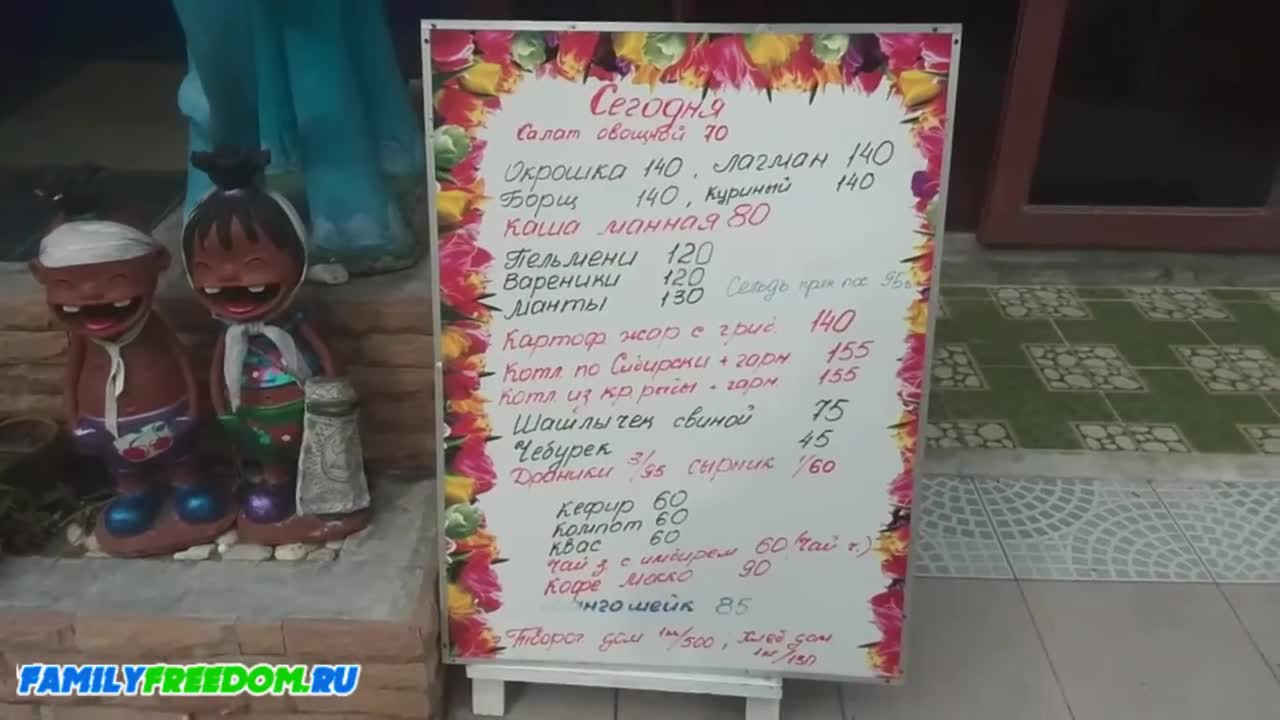 Сегодня
Салат овощной 70
Окрошка 140, Лагман 140
Борщ 140, куриный 140
Каша манная 80
Пельмени 120
Вареники 120
Манты 130
Сельдь прян пос 95
Картоф жар с гриб. 140
Котл. по Сибирски + гарн. 155
Котл. из кр. рыбы + гарн. 155
Шашлычек свиной 75
Чебурек 45
Драники 3/95 сырник 1/60
Кефир 60
Компот 60
Квас 60
Чай з. с имбирем 60 (Чай ч.)
Кофе Мокко 90
нгошейк 85
Творог дом 1кг/500, Хлеб дом
1кг/130
FAMILYFREEDOM.RU